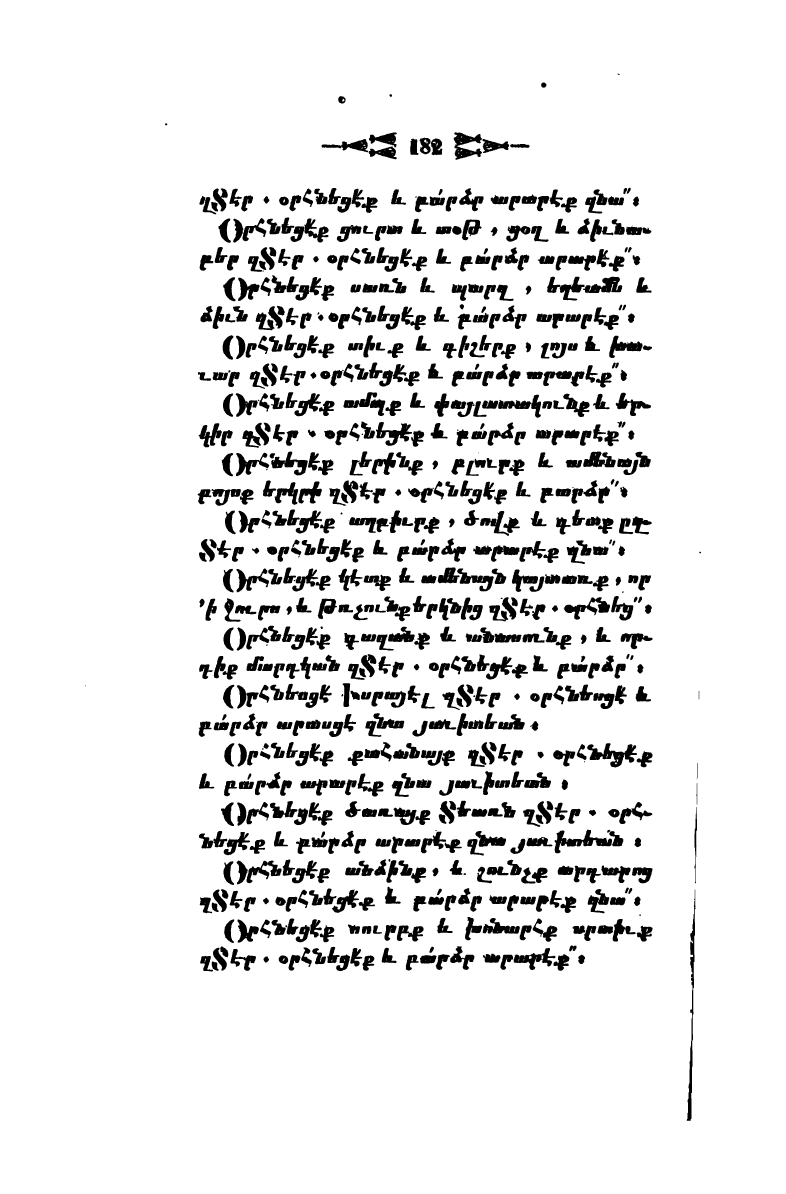 182
զՏէր . օրՀնեցէ՛ք և բա՛րձր արարէք զնա՛՛ ։
Օրհնեցէ՛ք ցուրտ և տօթ , ցօղ և ձիւնա-
բեր զՏէր . օրՀնեցէ՛ք և բա՛րձր արարէ՛ք՛՛ ։
ՕրՀնեցէ՛ք սառն և պարզ , եղեամն և
ձիւն զՏէր . օրՀնեցէ՛ք և բա՛րձր արարէք՛՛ ։
ՕրՀնեցէ՛ք տիւք և գիշերք , լոյս և խա-
ւար զՏէր . օրՀնեցէ՛ք և բա՛րձր արարէք՛՛ ։
ՕրՀնեցէ՛ք ամպք և փայլատակունք և եր-
կիր զՏէր . օրՀնեցէ՛ք և բա՛րձր արարէք՛՛ ։
ՕրՀնեցէ՛ք լերինք , բլուրք և ամենայն
բոյսք երկրի զՏէր . օրՀնեցէ՛ք և բարձր՛՛ ։
ՕրՀնեցէ՛ք աղբիւրք , ծովք և գետք ըզ-
Տէր . օրՀնեցէ՛ք և բա՛րձր արարէք զնա՛՛ ։
ՕրՀնեցէ՛ք կէտք և ամենայն կայտառք , որ
՚ի ջուրս , և թռչունք երկնից զՏէր . օրՀնեց՛՛ ։
ՕրՀնեցէ՛ք գազանք և անասունք , և որ-
դիք մարդկան զՏէր . օրՀնեցէ՛ք և բա՛րձր՛՛ ։
ՕրՀնեսցէ Իսրայէլ զՏէր . օրՀնեսցէ և
բա՛րձր արասցէ զնա յաւիտեան ։
ՕրՀնեցէ՛ք քաՀանայք զՏէր . օրՀնեցէ՛ք
և բա՛րձր արարէք զնա յաւիտեան ։
ՕրՀնեցէ՛ք ծառայք Տեառն զՏէր . օրՀ-
նեցէ՛ք և բա՛րձր արարէք զնա յաւիտեան ։
ՕրՀնեցէ՛ք անձինք , և շունչք արդարոց
զՏէր . օրՀնեցէ՛ք և բա՛րձր արարէք զնա՛՛ ։
ՕրՀնեցէ՛ք սուրբք և խոնարՀք սրտիւք
զՏէր . օրՀնեցէ՛ք և բա՛րձր արարէք՛՛ ։